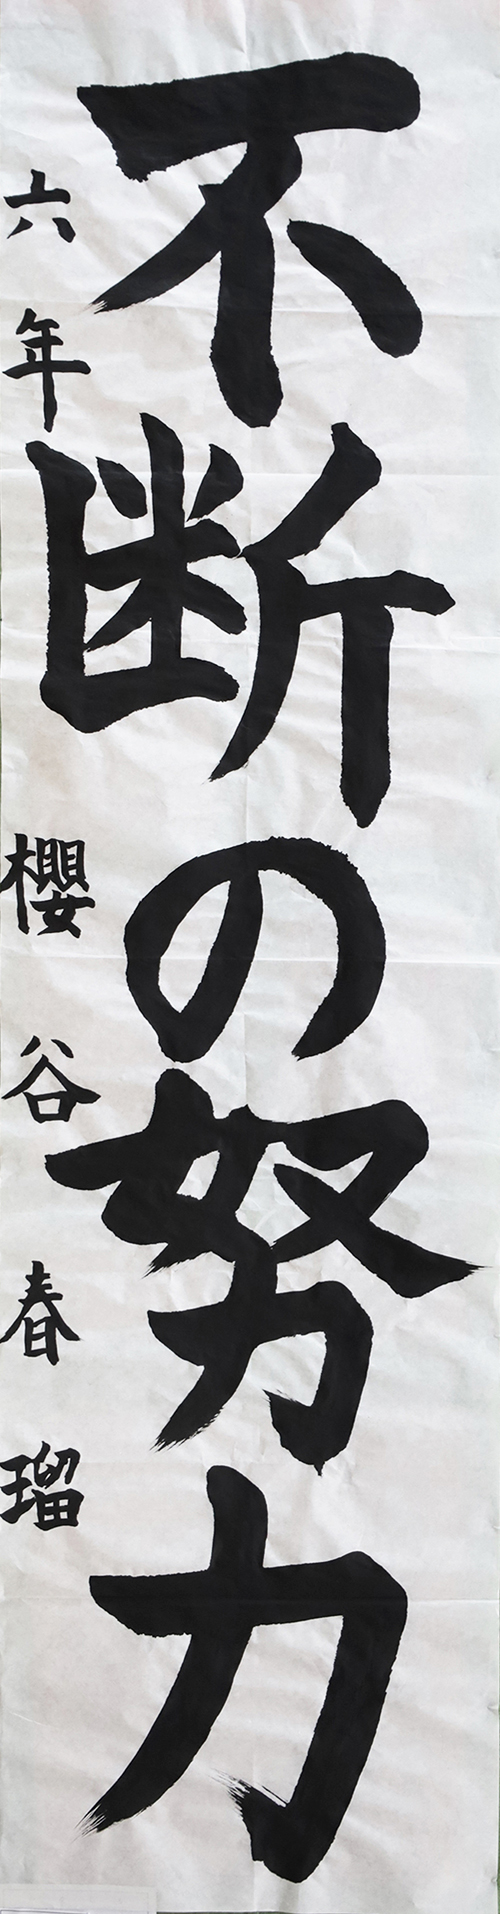 不断の努力
六年 櫻谷春瑠